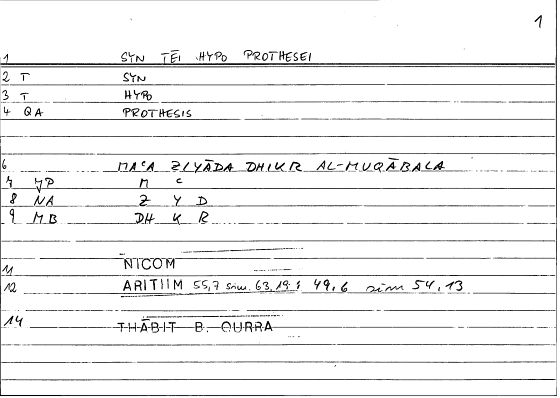 1
1 SYN TĒI HYPO PROTHESEI
2 T SYN
3 T HYPO
4 QA PROTHESIS
6 MAʿA ZIYĀDA DHIKR AL-MUQĀBALA
7 MP M ʿ
8 NA Z Y D
9 MB DH K R
11 NICOM
12 ARITIIM 55,7 sim. 63,19; 49,6 sim 54,13
14 THĀBIT B. QURRA